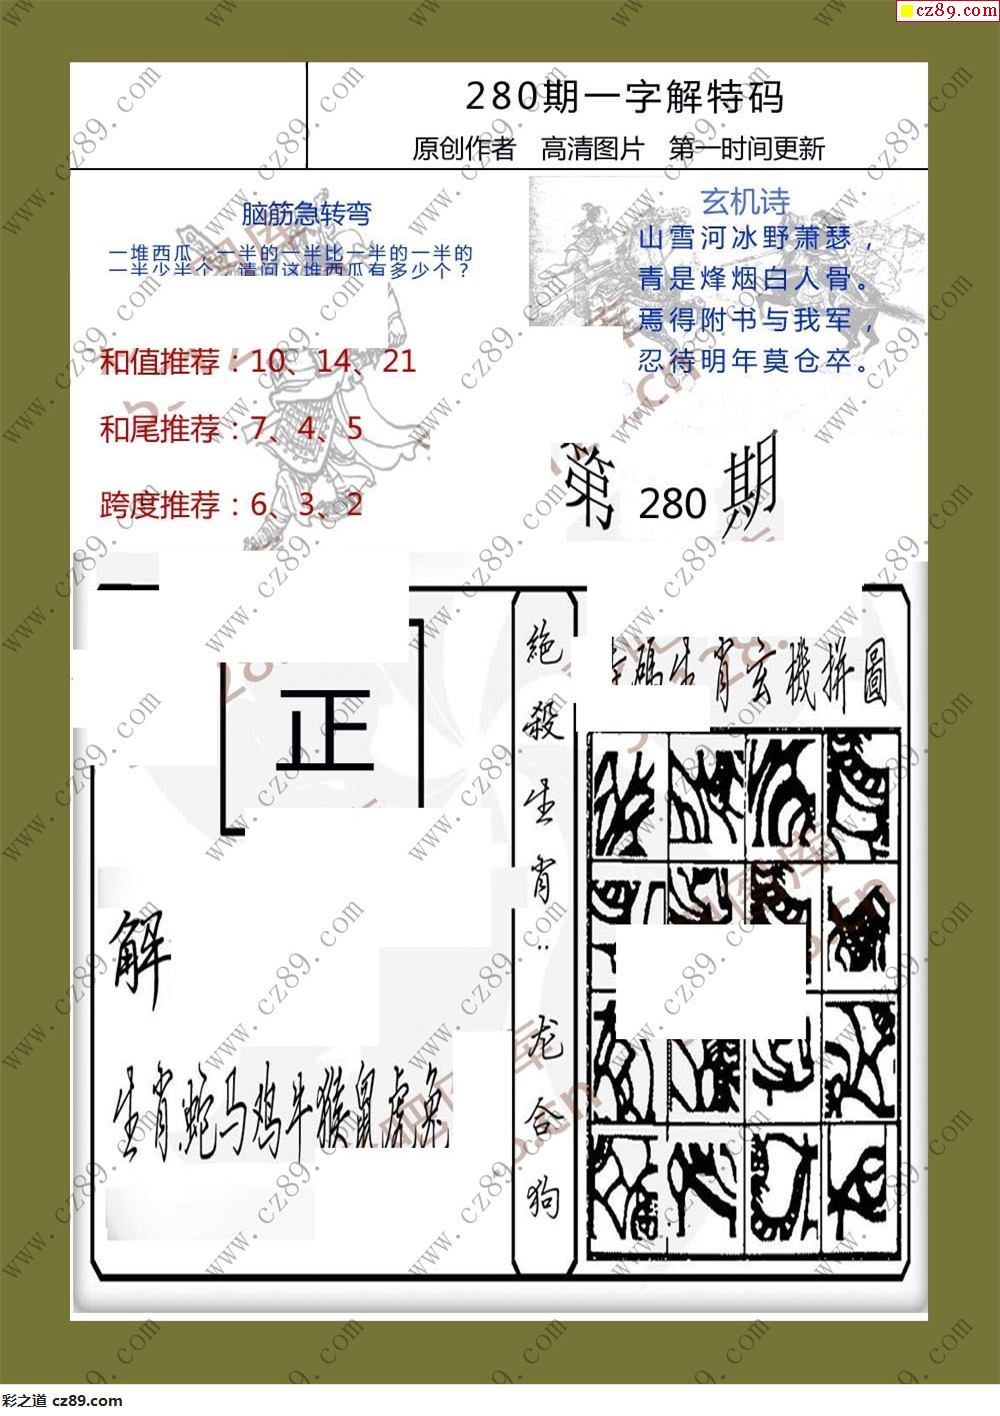 cz89.com
280期一字解特码
原创作者 高清图片 第一时间更新
脑筋急转弯
一堆西瓜，一半的一半比一半的一半的
一半少半个，请问这堆西瓜有多少个？
和值推荐：10、14、21
和尾推荐：7、4、5
跨度推荐：6、3、2
玄机诗
山雪河冰野萧瑟，
青是烽烟白人骨。
焉得附书与我军，
忍待明年莫仓卒。
第 280 期
正
解
生肖蛇马鸡牛猴鼠虎兔
絶殺生肖：龙合狗
碼生肖玄機拼圖
www.cz89.com
彩之道 cz89.com